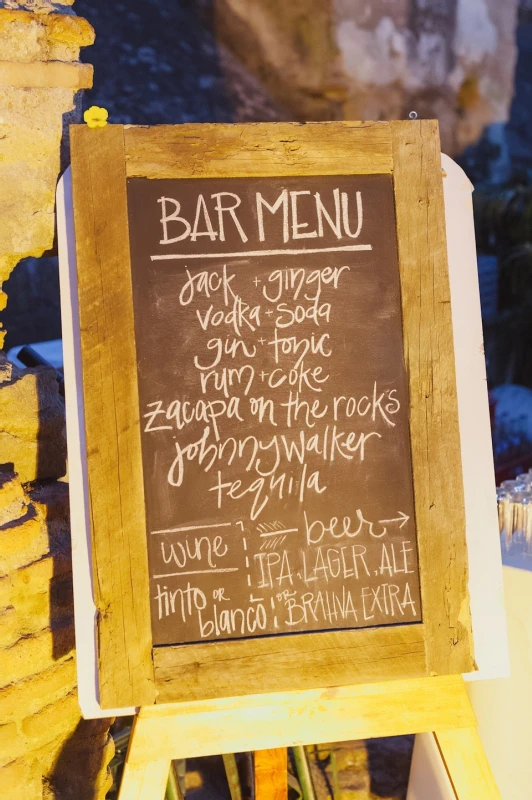 BAR MENU
jack + ginger
vodka + soda
gin + tonic
rum + coke
zacapa on the rocks
johnny walker
tequila
wine
tinto or
blanco
beer
IPA, LAGER, ALE
or BRAHVA EXTRA